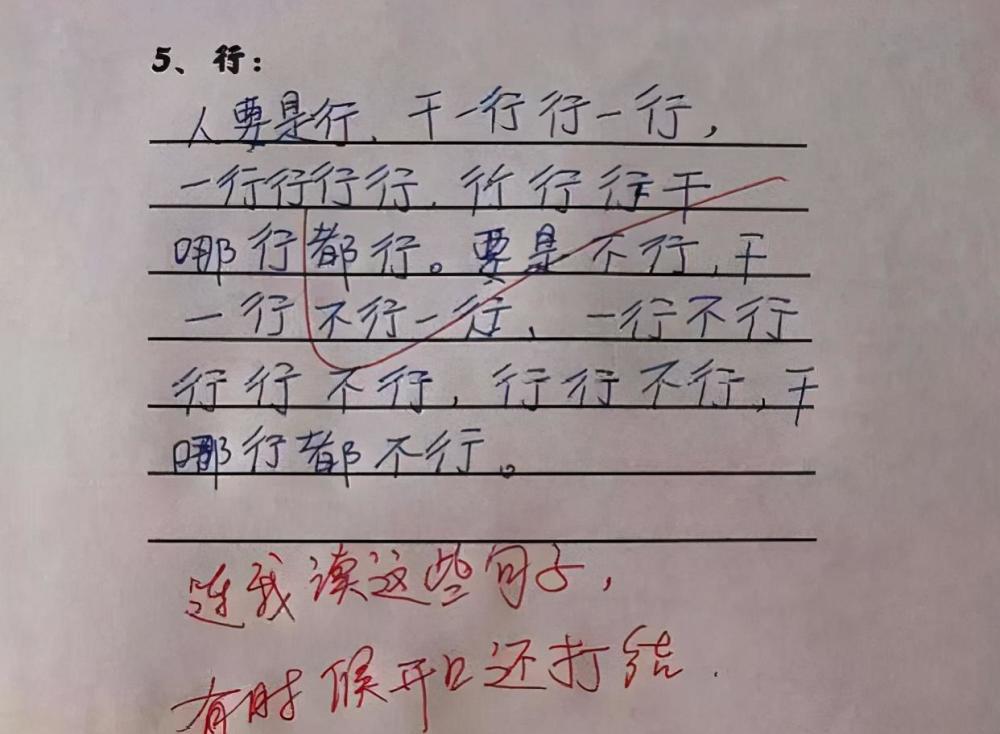 5、行：
人要是行、干一行行一行，
一行行行行，行行行干
哪行都行。要是不行，干
一行不行一行、一行不行
行行不行，行行不行，干
哪行都不行。
连我读这些句子，
有时候开口还打结.